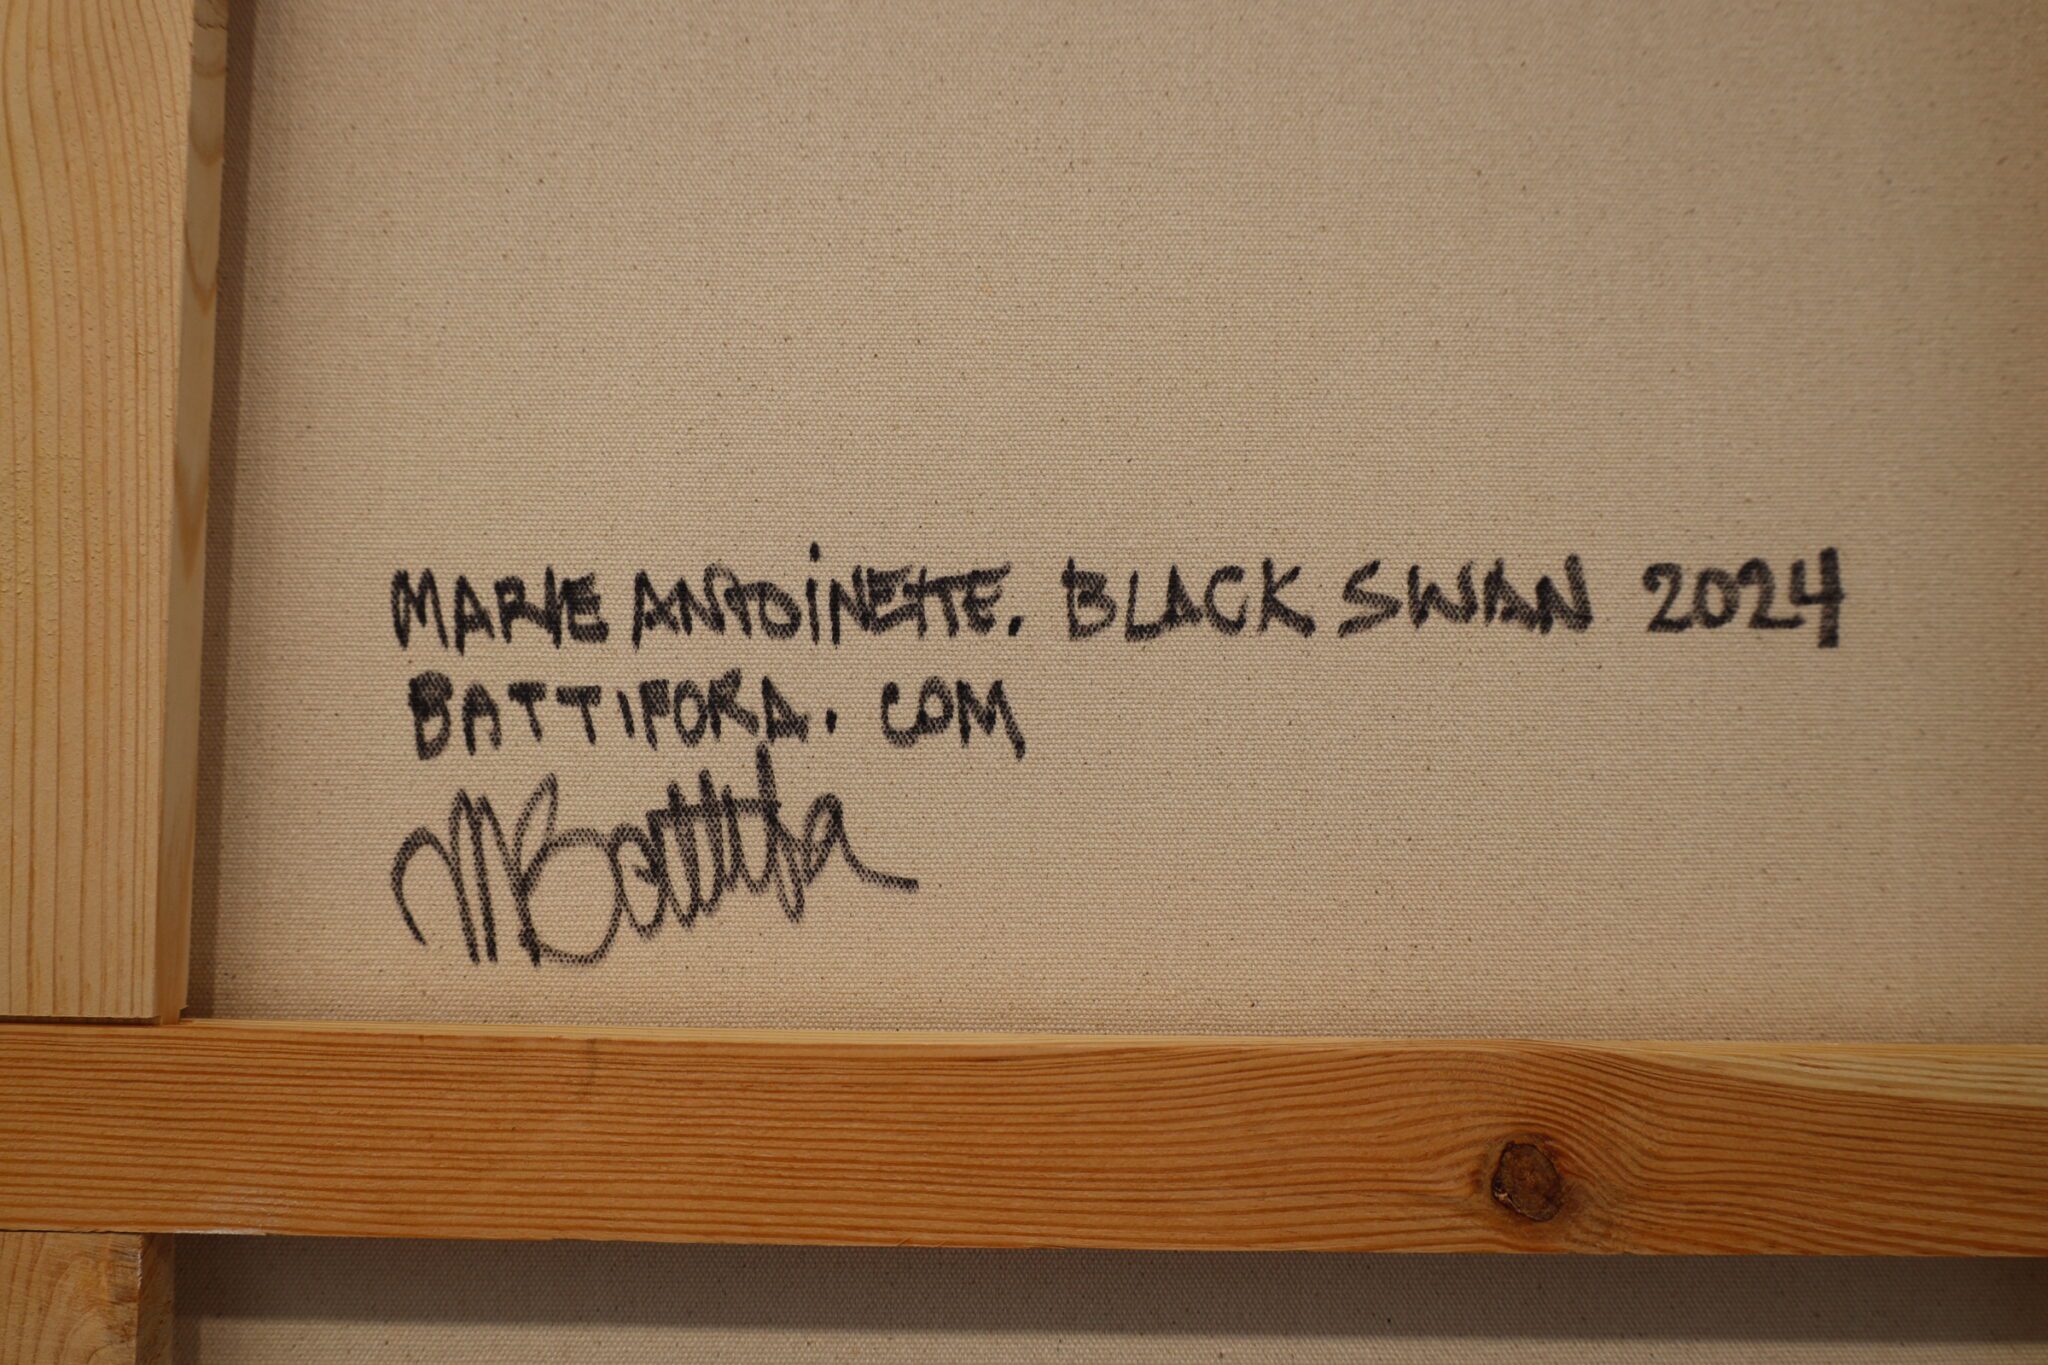 MARIE ANTOINETTE. BLACK SWAN 2024
BATTIFORA. COM
MBattifora